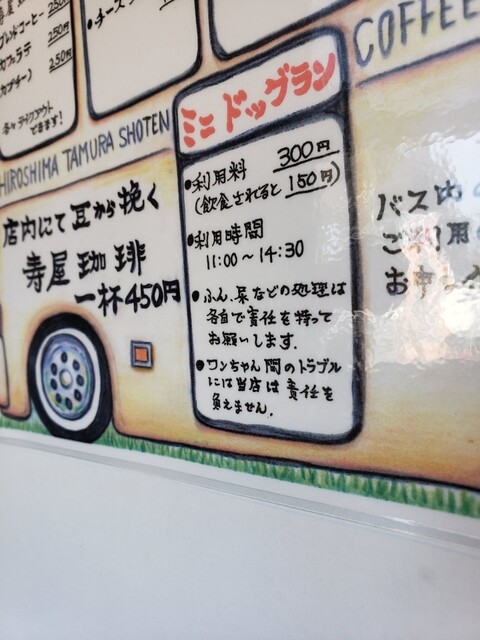 250円
ブレンドコーヒー 250円
カフェラテ 250円
カプチーノ)
できます!
・チーズ
COFFEE
HIROSHIMA TAMURA SHOTEN
ミニ ドッグラン
●利用料 300円
(飲食されると 150円)
●利用時間
11:00～14:30
●ふん、尿などの処理は
各自で責任を持って
お願いします.
●ワンちゃん間のトラブル
には当店は責任を
負えません.
店内にて豆から挽く
寺屋珈琲
一杯450円
バス内
ご利用
お申